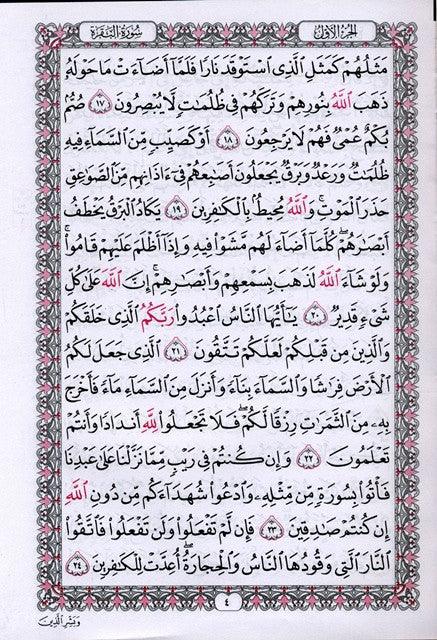 الجزء الأول سورة البقرة
مَثَلُهُمْ كَمَثَلِ الَّذِي اسْتَوْقَدَ نَارًا فَلَمَّا أَضَاءَتْ مَا حَوْلَهُ
ذَهَبَ اللَّهُ بِنُورِهِمْ وَتَرَكَهُمْ فِي ظُلُمَٰتٍ لَّا يُبْصِرُونَ ١٧ صُمٌّ
بُكْمٌ عُمْيٌ فَهُمْ لَا يَرْجِعُونَ ١٨ أَوْ كَصَيِّبٍ مِّنَ السَّمَاءِ فِيهِ
ظُلُمَٰتٌ وَرَعْدٌ وَبَرْقٌ يَجْعَلُونَ أَصَٰبِعَهُمْ فِي ءَاذَانِهِم مِّنَ الصَّوَٰعِقِ
حَذَرَ الْمَوْتِ وَاللَّهُ مُحِيطٌ بِالْكَٰفِرِينَ ١٩ يَكَادُ الْبَرْقُ يَخْطَفُ
أَبْصَٰرَهُمْ كُلَّمَا أَضَاءَ لَهُم مَّشَوْا فِيهِ وَإِذَا أَظْلَمَ عَلَيْهِمْ قَامُوا
وَلَوْ شَاءَ اللَّهُ لَذَهَبَ بِسَمْعِهِمْ وَأَبْصَٰرِهِمْ إِنَّ اللَّهَ عَلَىٰ كُلِّ
شَيْءٍ قَدِيرٌ ٢٠ يَٰأَيُّهَا النَّاسُ اعْبُدُوا رَبَّكُمُ الَّذِي خَلَقَكُمْ
وَالَّذِينَ مِن قَبْلِكُمْ لَعَلَّكُمْ تَتَّقُونَ ٢١ الَّذِي جَعَلَ لَكُمُ
الْأَرْضَ فِرَٰشًا وَالسَّمَاءَ بِنَاءً وَأَنزَلَ مِنَ السَّمَاءِ مَاءً فَأَخْرَجَ
بِهِ مِنَ الثَّمَرَٰتِ رِزْقًا لَّكُمْ فَلَا تَجْعَلُوا لِلَّهِ أَندَادًا وَأَنتُمْ
تَعْلَمُونَ ٢٢ وَإِن كُنتُمْ فِي رَيْبٍ مِّمَّا نَزَّلْنَا عَلَىٰ عَبْدِنَا
فَأْتُوا بِسُورَةٍ مِّن مِّثْلِهِ وَادْعُوا شُهَدَاءَكُم مِّن دُونِ اللَّهِ
إِن كُنتُمْ صَٰدِقِينَ ٢٣ فَإِن لَّمْ تَفْعَلُوا وَلَن تَفْعَلُوا فَاتَّقُوا
النَّارَ الَّتِي وَقُودُهَا النَّاسُ وَالْحِجَارَةُ أُعِدَّتْ لِلْكَٰفِرِينَ ٢٤
٤
وبشر الذين